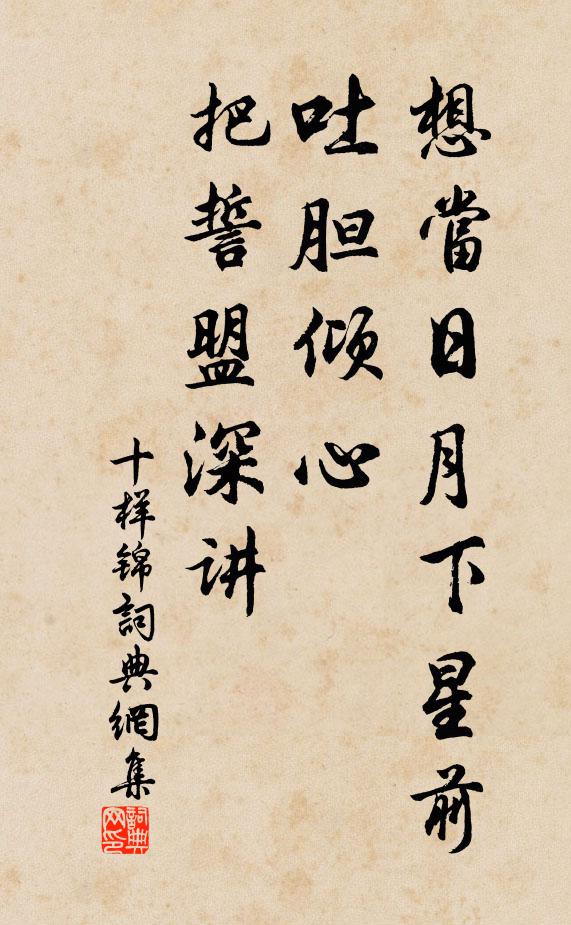 想當日月下星前
吐胆倾心
把誓盟深讲
十样锦詞典網集
詞典网印